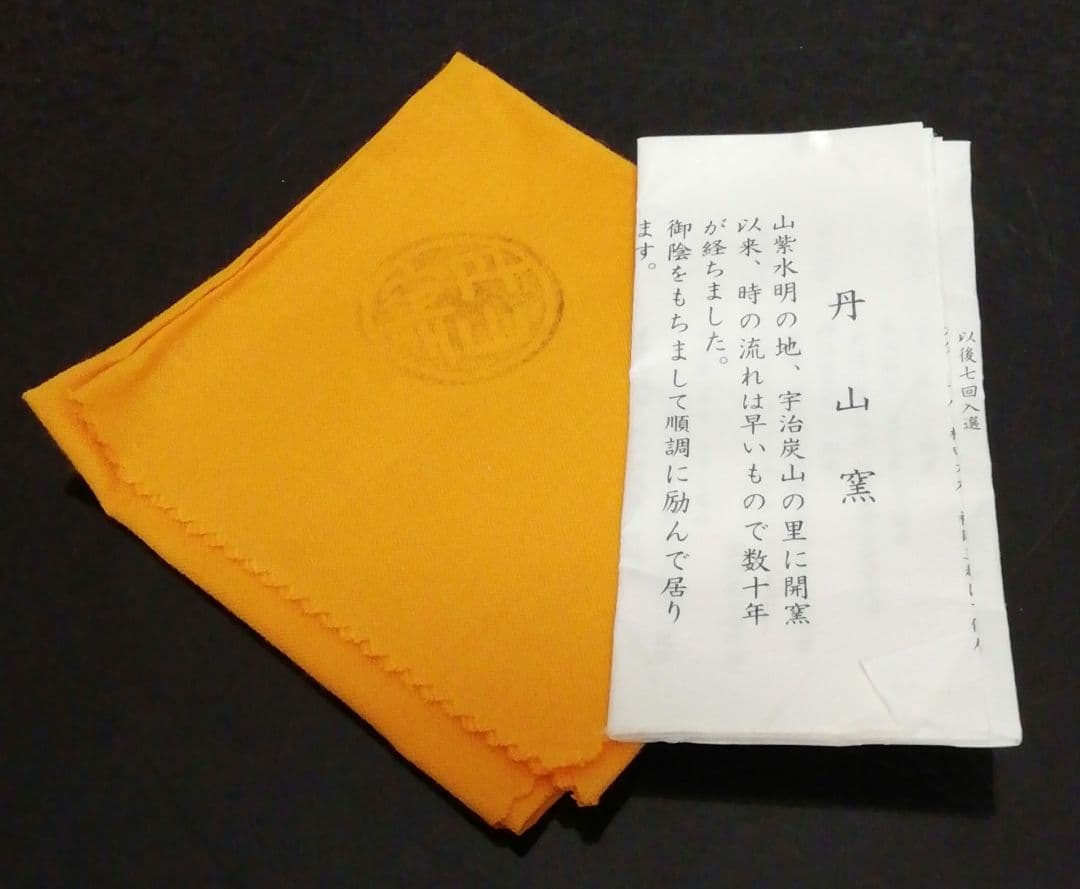 丹山窯
山紫水明の地、宇治炭山の里に開窯
以来、時の流れは早いもので数十年
が経ちました。
御陰をもちまして順調に励んで居り
ます。
以後七回入選